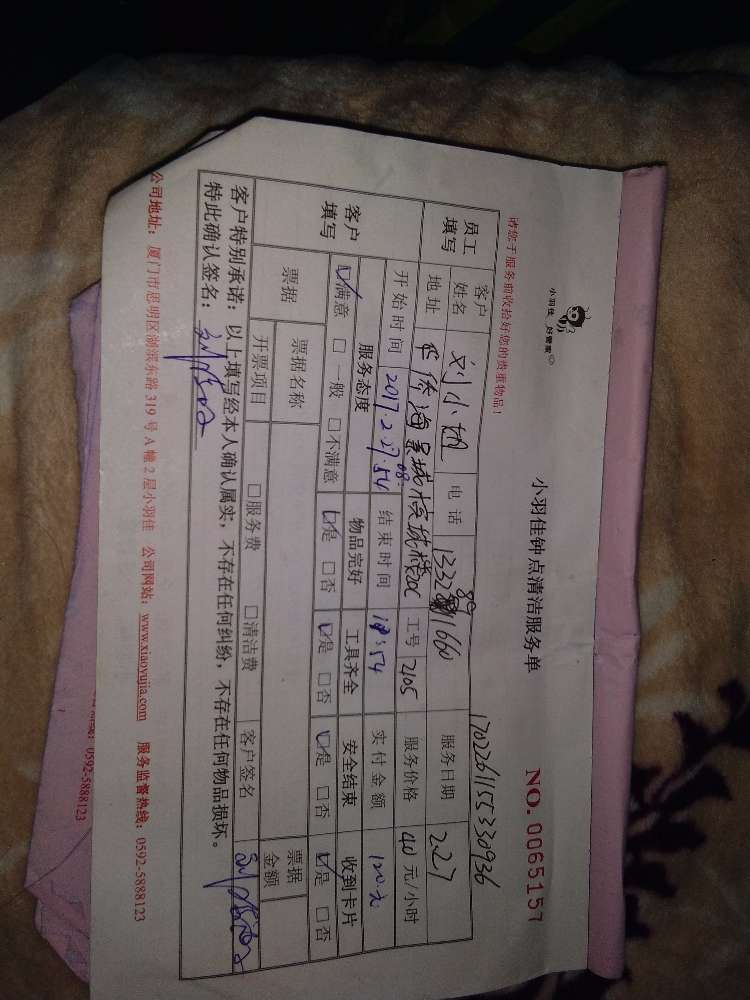 小羽佳 好管家
小羽佳钟点清洁服务单
NO. 0065157
请您于服务前收拾好您的贵重物品！
1702261155330936
员工填写
客户姓名 刘小姐 电话 服务日期 2.27
地址 工号 2105 服务价格 40元/小时
开始时间 2017.2.27. 08:54 结束时间 实付金额
客户填写
服务态度 物品完好 工具齐全 安全结束 收到卡片
☑满意 □一般 □不满意 ☑是 □否 ☑是 □否 ☑是 □否 ☑是 □否
票据 票据名称 票据金额
开票项目 □服务费 □清洁费 客户签名
客户特别承诺：以上填写经本人确认属实，不存在任何纠纷，不存在任何物品损坏。
特此确认签名：
公司地址：厦门市思明区湖滨东路319号A幢2层小羽佳 公司网站：www.xiaoyujia.com 服务监督热线：0592-5888123
0592-5888123